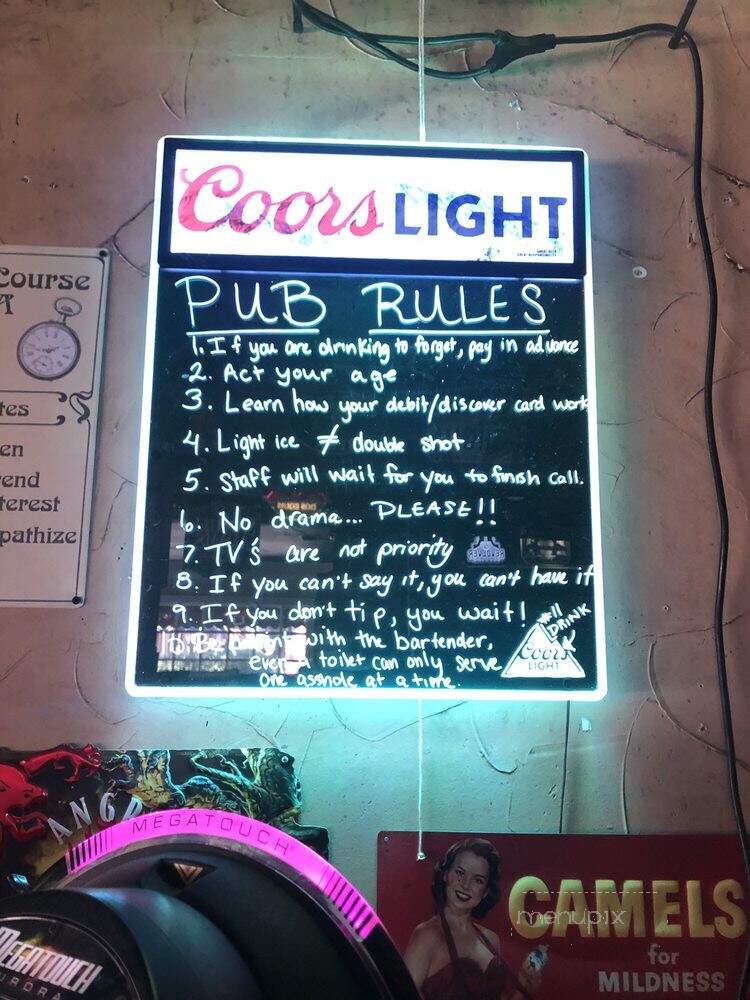 Coors LIGHT
GREAT BEER
GREAT RESPONSIBILITY
PUB RULES
1. If you are drinking to forget, pay in advance
2. Act your age
3. Learn how your debit/discover card work
4. Light ice ≠ double shot
5. Staff will wait for you to finish call.
6. No drama... PLEASE!!
7. TV's are not priority
8. If you can't say it, you can't have it
9. If you don't tip, you wait!
10. Be patient with the bartender,
even a toilet can only serve
one asshole at a time.
#11
DRINK
Coors
LIGHT
Course
A
tes
en
rend
terest
pathize
ANGR
MEGATOUCH
MEGATOUCH
AURORA
CAMELS
menupix
for
MILDNESS